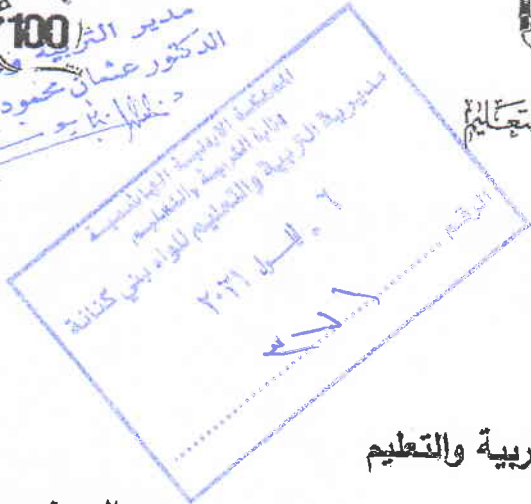 100
مدير التربية و
الدكتور عثمان محمود
التعليم
المملكة الأردنية الهاشمية
وزارة التربية والتعليم
مديرية التربية والتعليم للواء بني كنانة
٠٦ أيلول ٢٠٢١
الرقم
ربية والتعليم